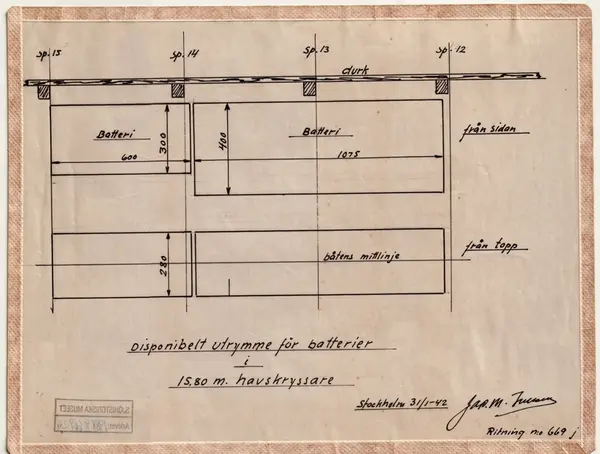 Sp. 15 Sp. 14 Sp. 13 Sp. 12
durk
Batteri 300 400 Batteri från sidan
600 1075
från topp
280 båtens mittlinje
Disponibelt utrymme för batterier
i
15,80 m. havskryssare
Stockholm 31/1-42
Jac. M.
Ritning no 669 j
SJÖHISTORISKA MUSEET